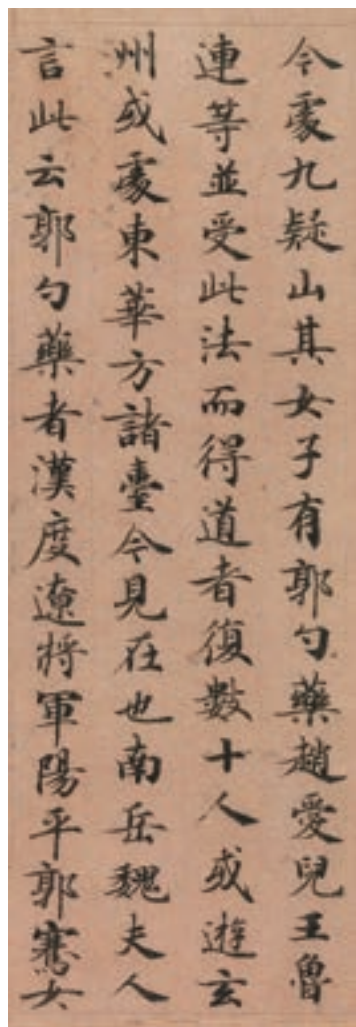 今處九疑山其女子有郭勺藥趙愛兒王魯
連等並受此法而得道者復數十人或遊玄
州或處東華方諸臺今見在也南岳魏夫人
言此云郭勺藥者漢度遼將軍陽平郭騫女